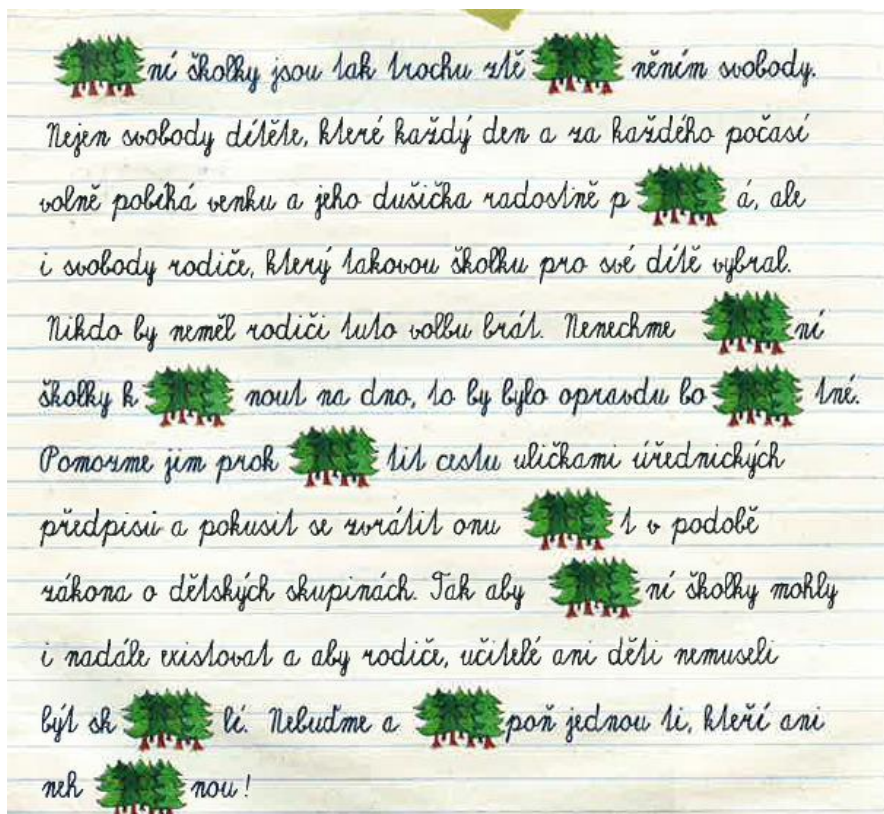 ní školky jsou tak trochu ztě něním svobody.
Nejen svobody dítěte, které každý den a za každého počasí
volně pobíhá venku a jeho dušička radostně p á, ale
i svobody rodiče, který takovou školku pro své dítě vybral.
Nikdo by neměl rodiči tuto volbu brát. Nenechme ní
školky k nout na dno, to by bylo opravdu bo tné.
Pomozme jim prok tit cestu uličkami úřednických
předpisů a pokusit se zvrátit onu t v podobě
zákona o dětských skupinách. Tak aby ní školky mohly
i nadále existovat a aby rodiče, učitelé ani děti nemuseli
být sk lí. Nebuďme a poň jednou ti, kteří ani
neh nou!